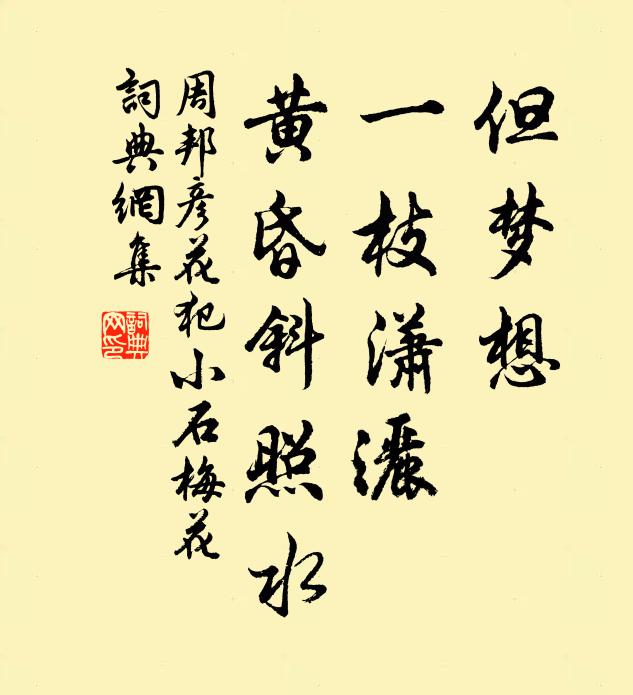 但梦想
一枝潇灑
黄昏斜照水
周邦彦花犯小石梅花
詞典網集
詞典网印